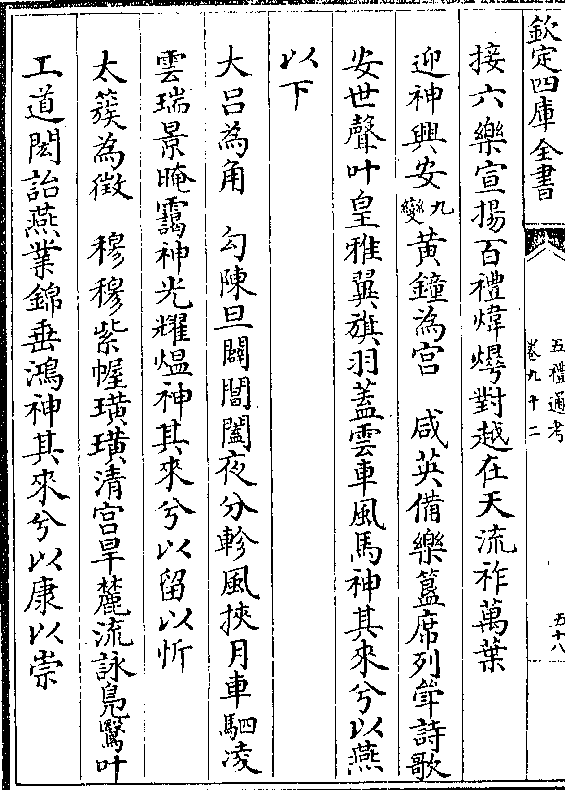 欽定四庫全書
五禮通考
卷九十二
五十八
接六樂宣揚百禮煒燁對越在天流祚萬葉
迎神興安九變黃鐘為宮　咸英備樂簋席列斝詩歌
安世聲叶皇雅翼旗羽蓋雲車風馬神其來兮以燕
以下
大吕為角　勾陳旦闢閶闔夜分軫風挾月車駟凌
雲瑞景晻靄神光耀煴神其來兮以留以忻
太簇為徵　穆穆紫幄璜璜清宮旱麓流詠鳧鷖叶
工道閎詒燕業錦垂鴻神其來兮以康以崇